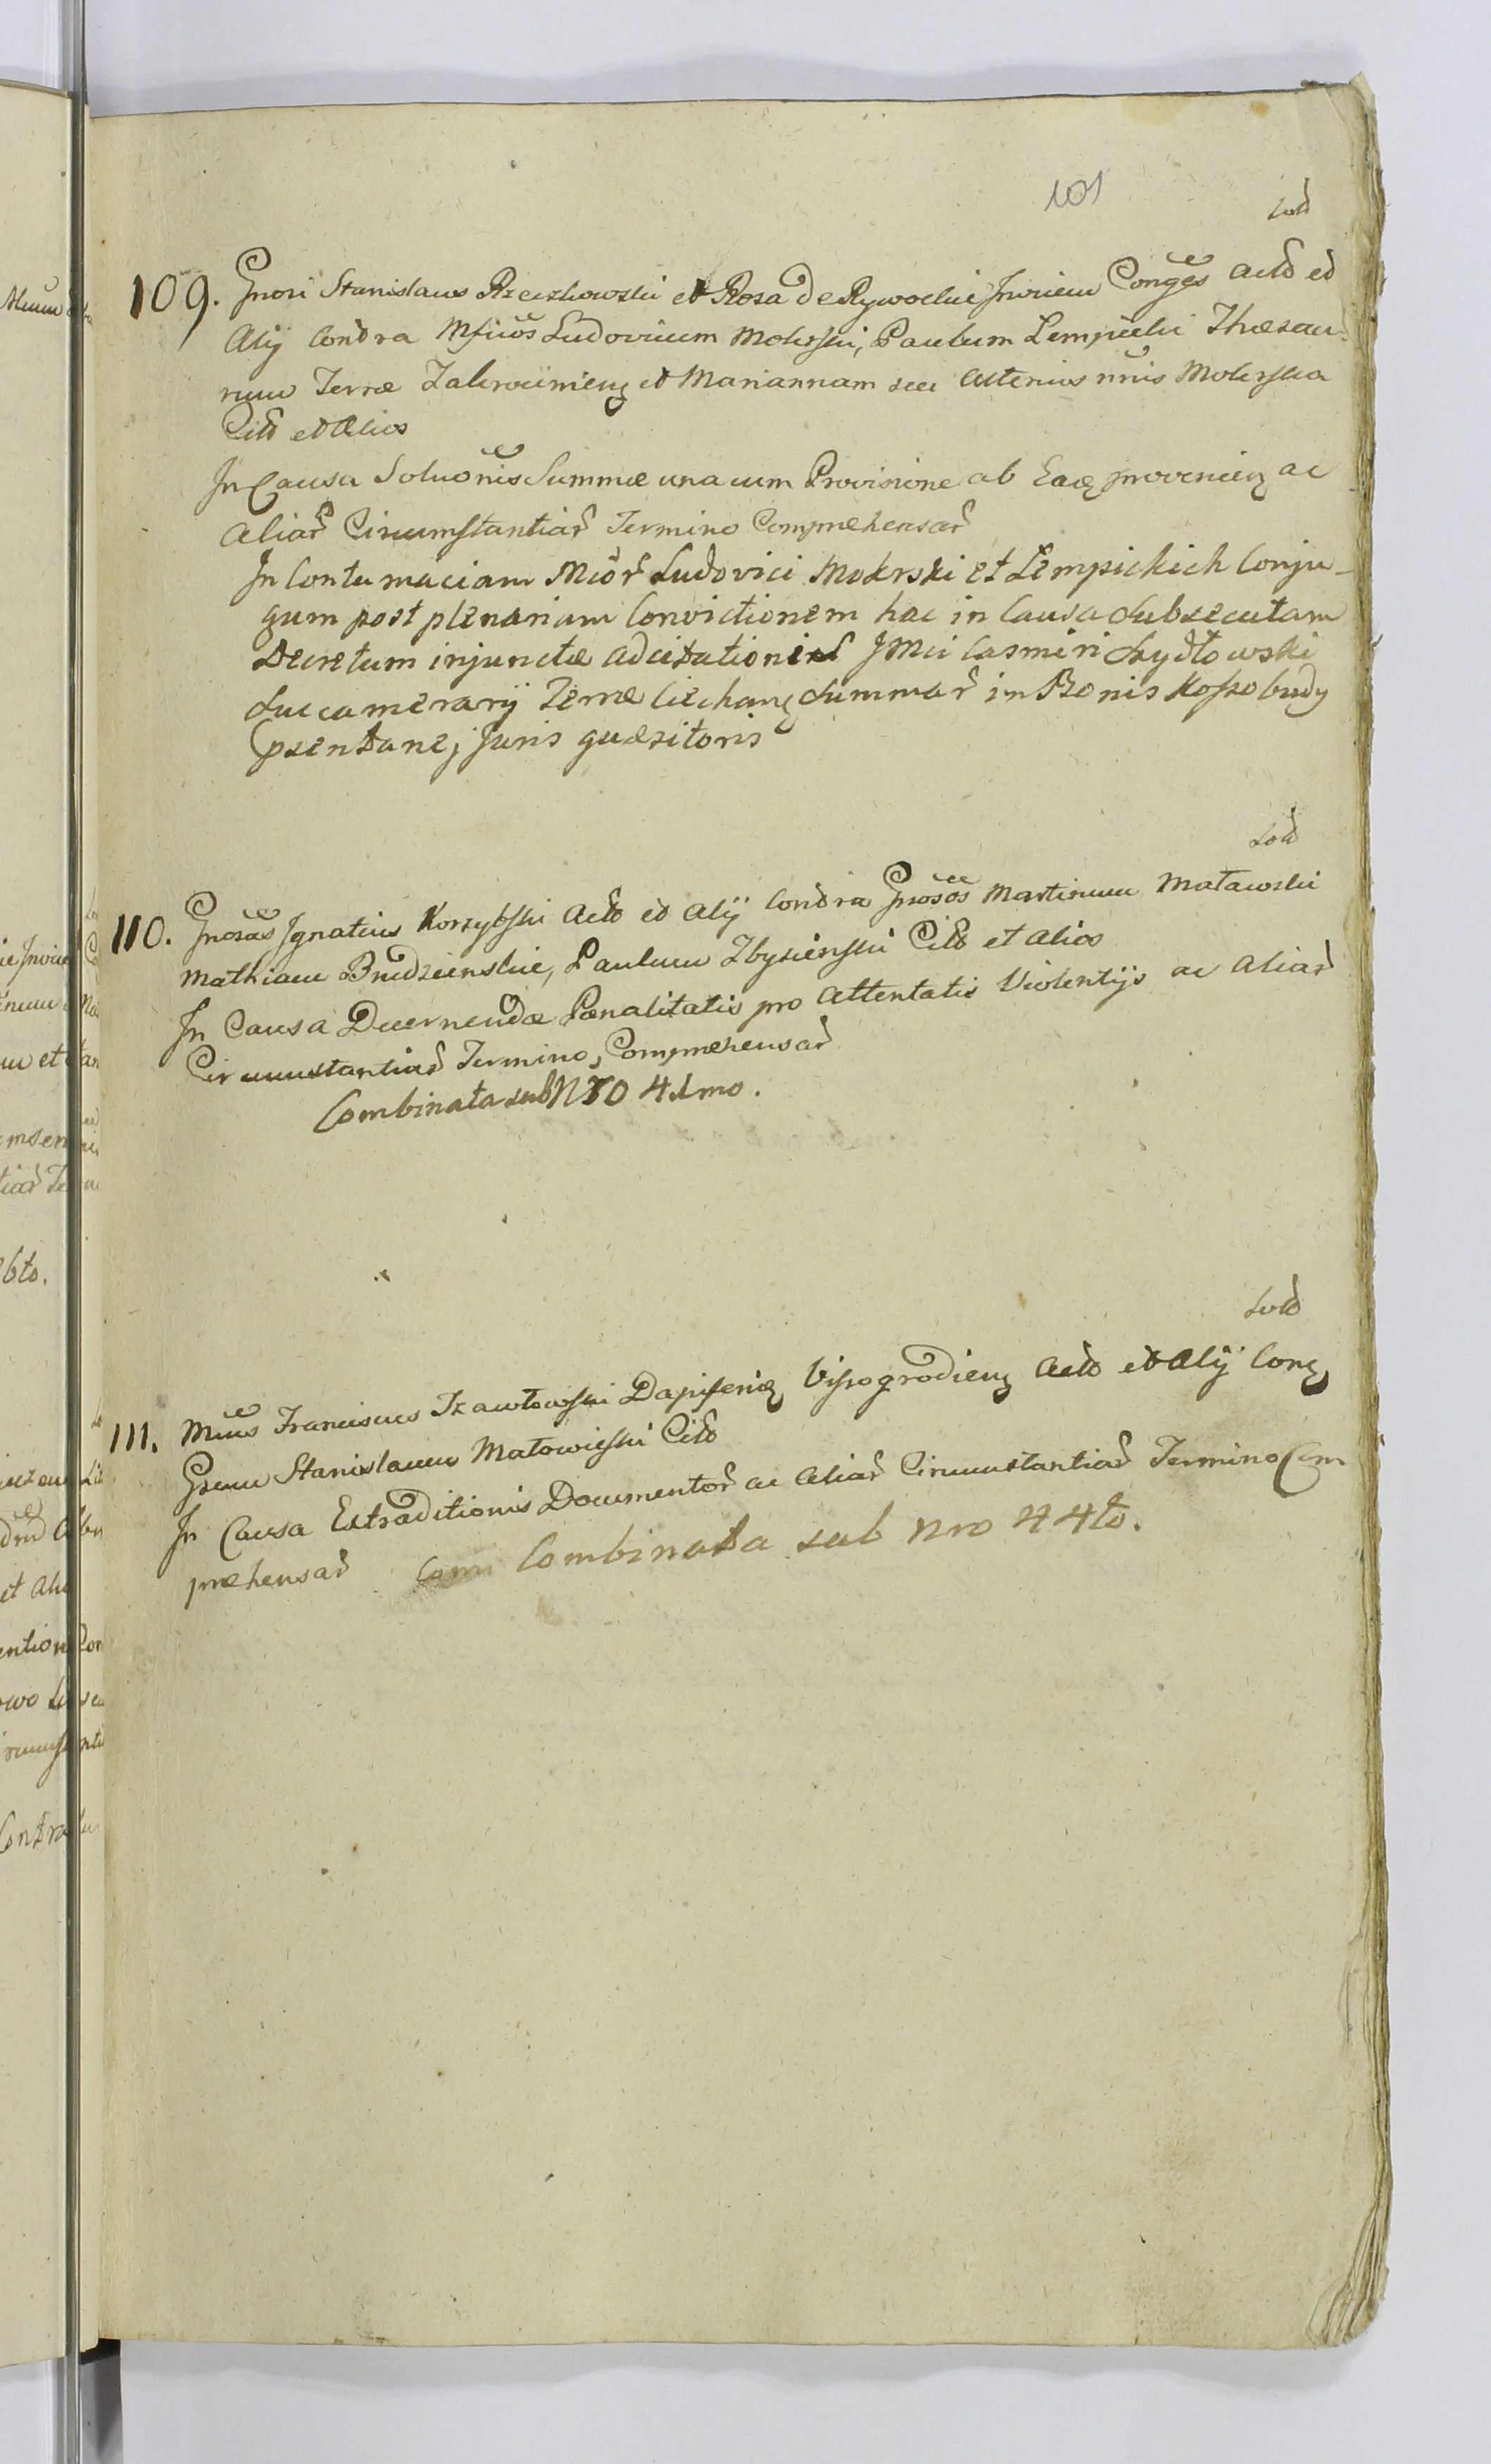 101
Sold
109. Gnosi Stanislaus Rzeczkowski et Rosa de Rywockie Invicem Conges Actt et
Alij Contra Mficos Ludovicum Mokrski, Paulum Lempicki Thesau-
rum Terræ Zakrocimien et Mariannam seu alterius nnis Mokrska
Citt et Alios
In Causa Soluonis Summæ una cum Provisione ab Eaq provenien ac
Aliar Circumstantiar Termino Compræhensar
In Contumaciam Mcor Ludovici Mokrski et Lempickich Conju-
gum post plenariam Convictionem hac in Causa Subsecutam
Decretum injunctæ adcitationis JMci Casmiri Szydłowski
Succamerarij Terræ Ciechan Summar in Bonis Kossobudy
Psentanej Juris quæsitoris
Sold
110. Gnosus Ignatius Korzybski Actt et Alij Contra Gnosos Martinum Matawski
Mathiam Brudzienskie, Paulum Zbysienski Citt et Alios
In Causa Decernendæ Pænalitatis pro Attentatis Violentijs ac Aliar
Circumstantiar Termino Compræhensar
Combinata sub Nro 41mo.
Sold
111. Mcus Franciscus Tzawłowski Dapiferid Vissogrodien Actt et Alij Con
Gsum Stanislaum Małowieski Citt
In Causa Extraditionis Documentor ac Aliar Circumstantiar Termino Com
præhensar Combinata sub Nro 44to.